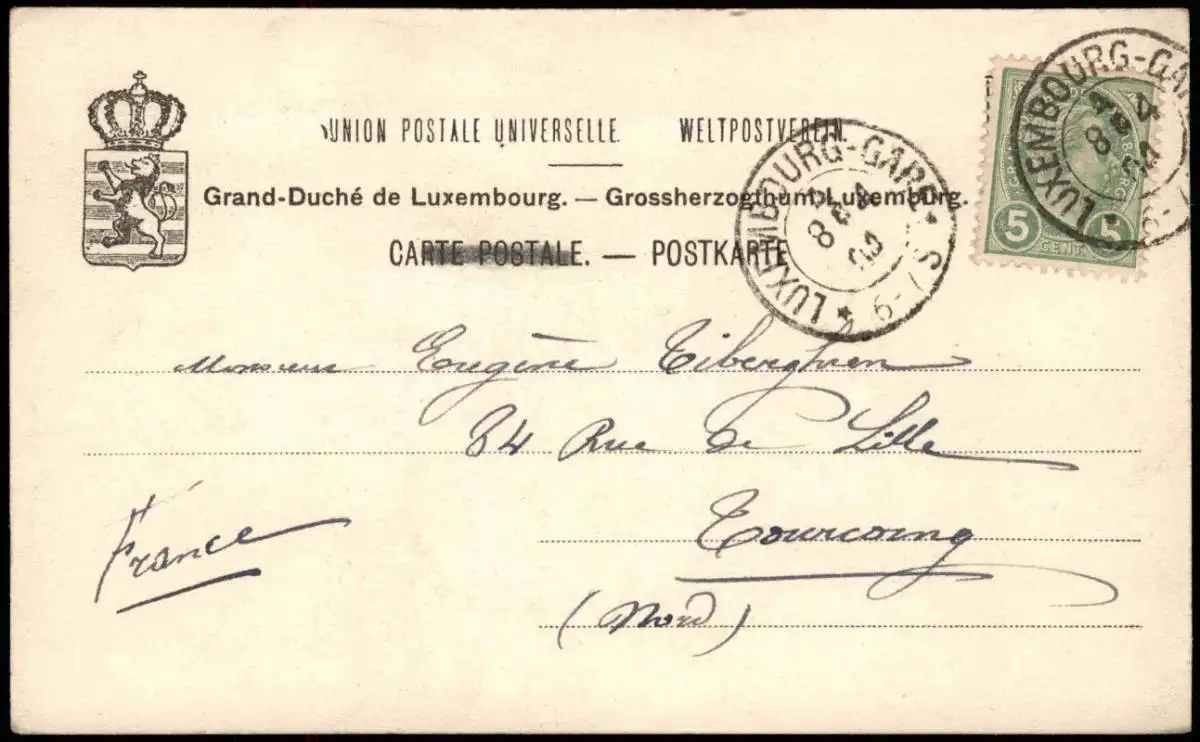 UNION POSTALE UNIVERSELLE. WELTPOSTVEREIN.
Grand-Duché de Luxembourg. — Grossherzogthum Luxemburg.
CARTE POSTALE. — POSTKARTE
LUXEMBOURG-GARE
6-7 S
LUXEMBOURG-GAR
5 CENT. 5
Monsieur Eugène Tiberghien
84 Rue de Lille
Tourcoing
(Nord)
France